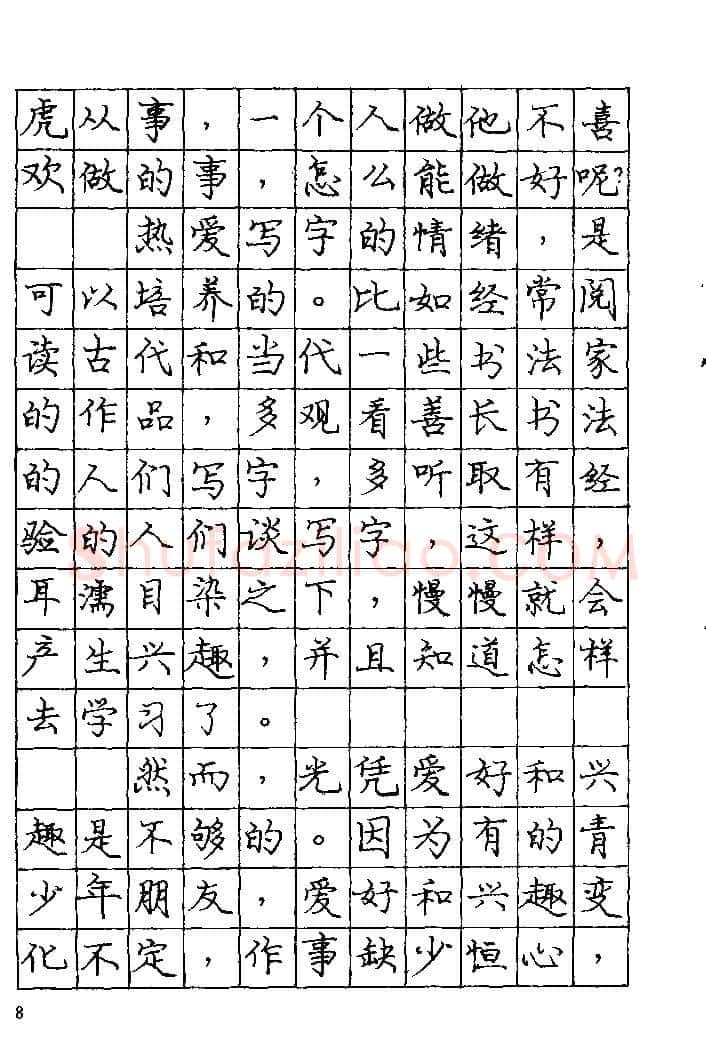 虎从事，一个人做他不喜
欢做的事，怎么能做好呢?
热爱写字的情绪，是
可以培养的。比如经常阅
读古代和当代一些书法家
的作品，多观看善长书法
的人们写字，多听取有经
验的人们谈写字，这样，
Shufaziliao.COM
耳濡目染之下，慢慢就会
产生兴趣，并且知道怎样
去学习了。
然而，光凭爱好和兴
趣是不够的。因为有的青
少年朋友，爱好和兴趣变
化不定，作事缺少恒心，
8